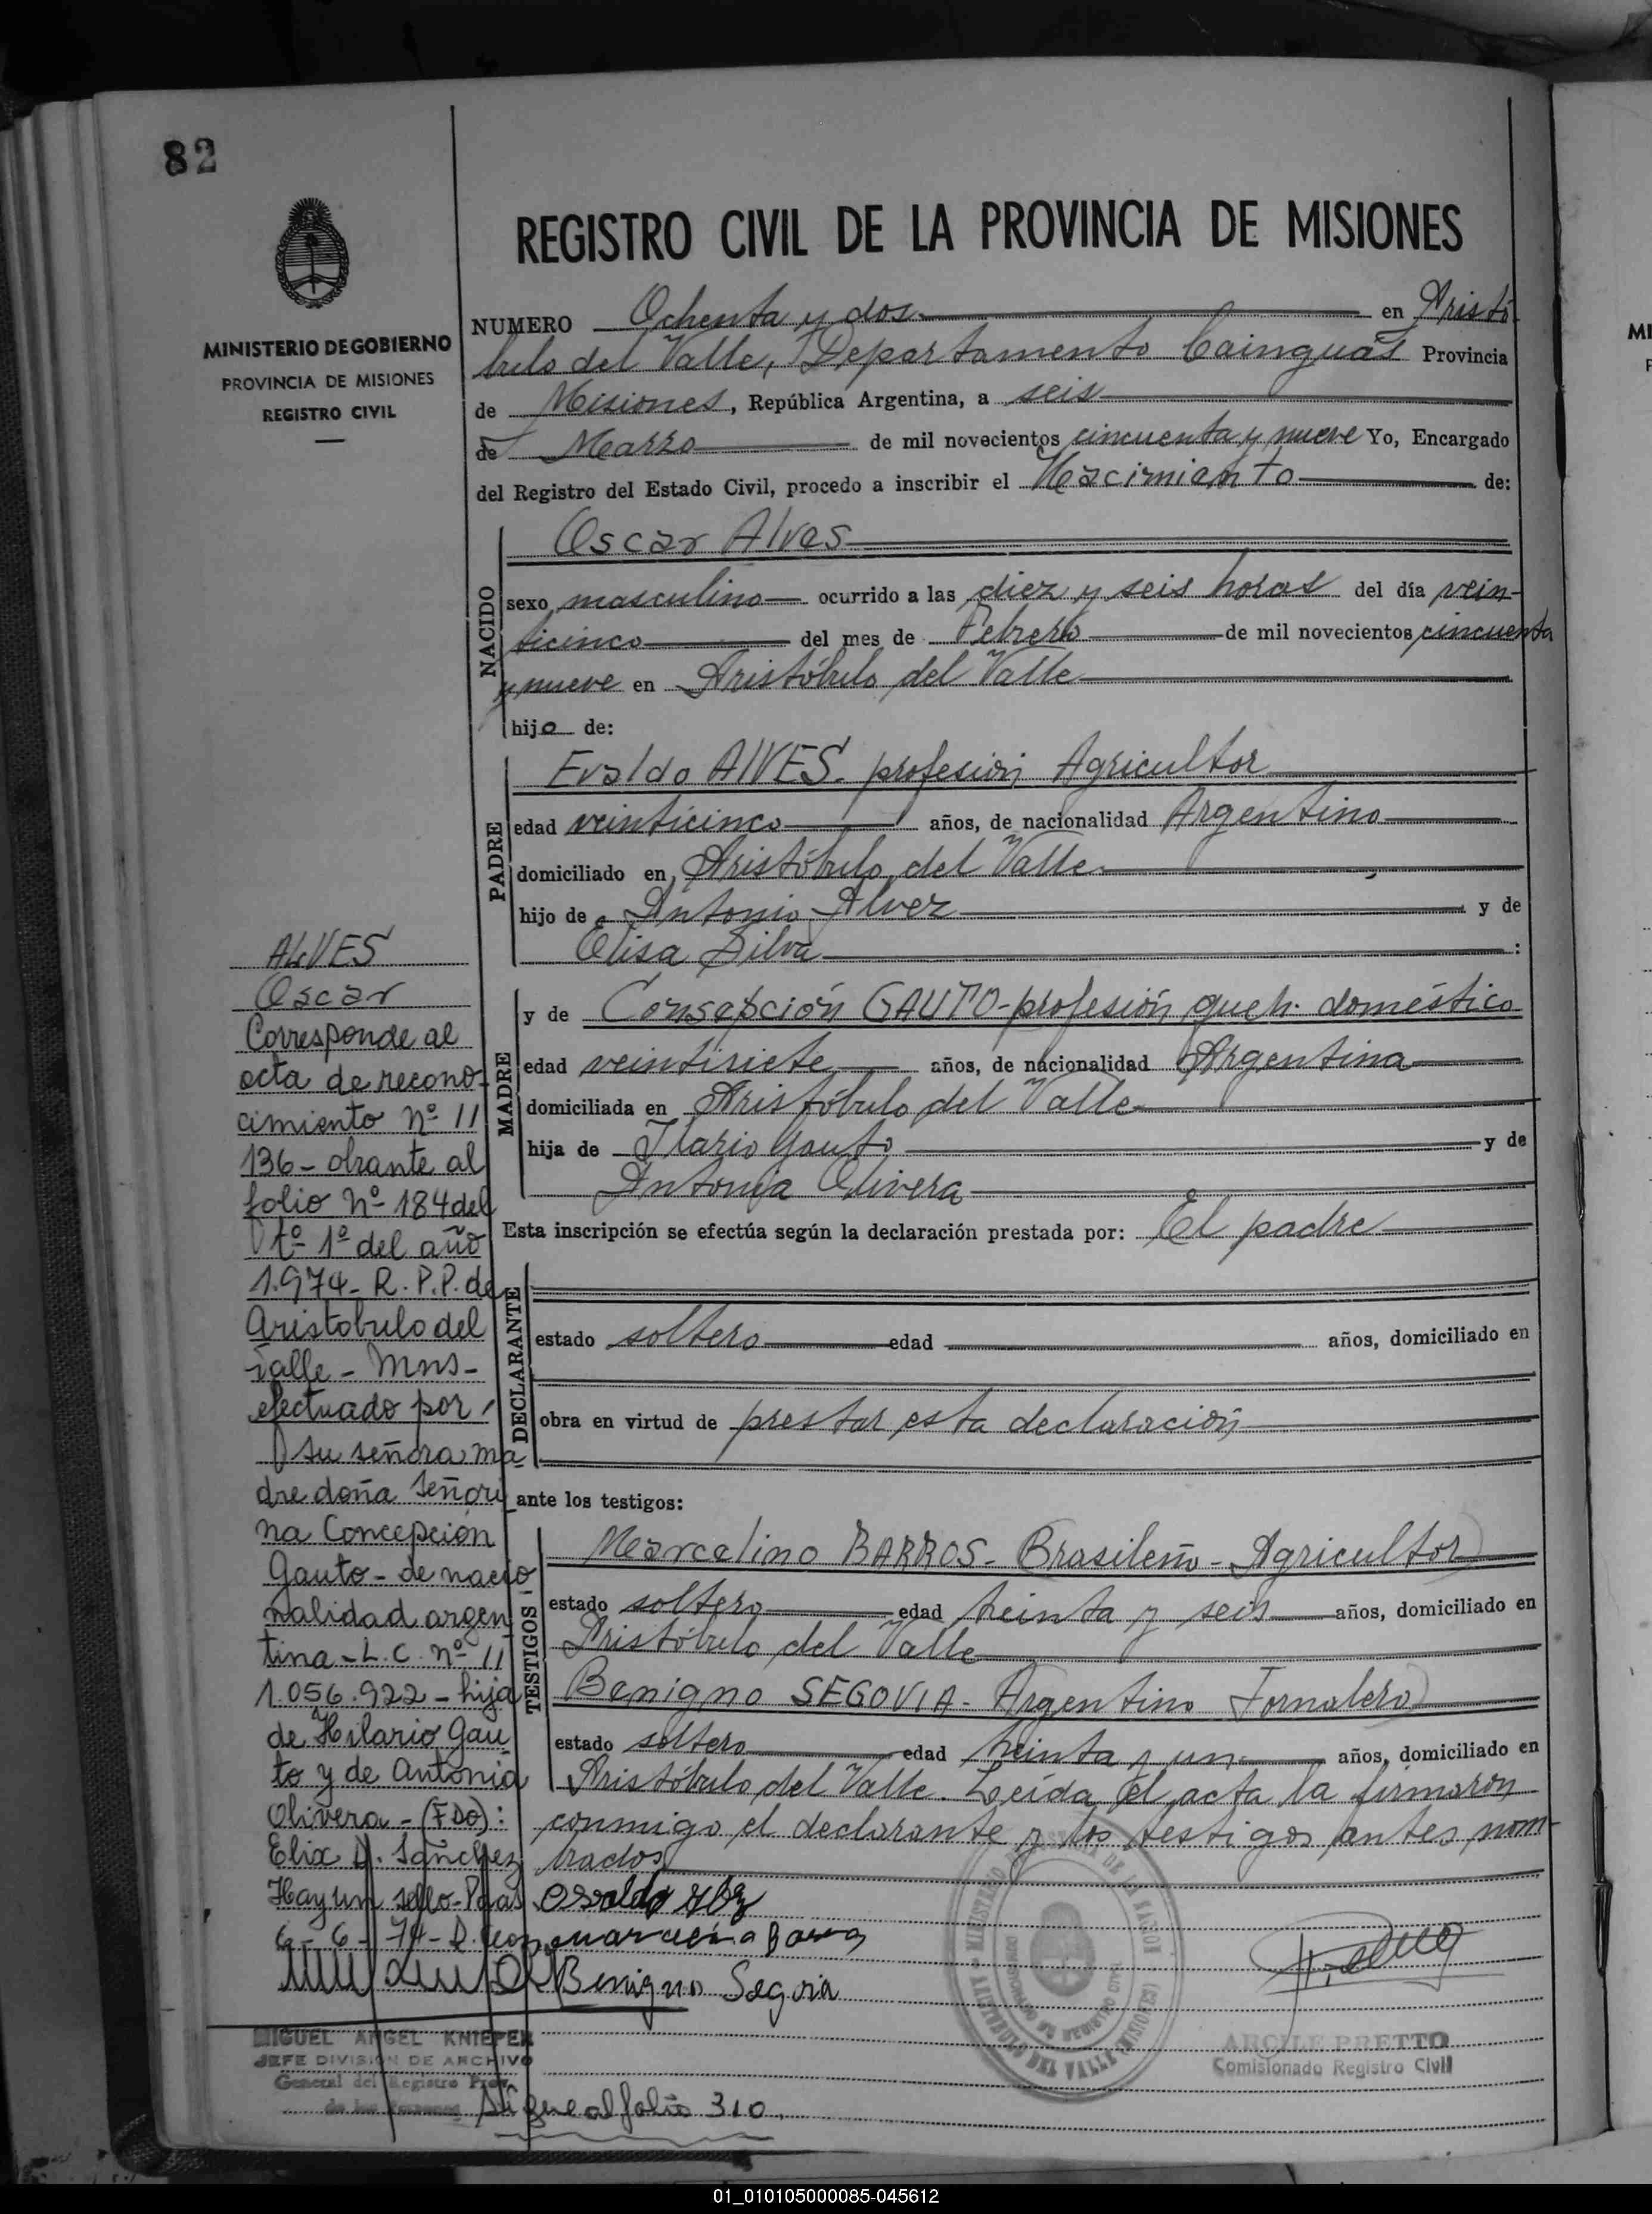 82
REGISTRO CIVIL DE LA PROVINCIA DE MISIONES
MINISTERIO DE GOBIERNO
PROVINCIA DE MISIONES
REGISTRO CIVIL
NUMERO Ochenta y dos en Aristó
bulo del Valle, Departamento Cainguás Provincia
de Misiones, República Argentina, a seis
de Marzo de mil novecientos cincuenta y nueve Yo, Encargado
del Registro del Estado Civil, procedo a inscribir el Nacimiento de:
NACIDO
Oscar Alves
sexo masculino ocurrido a las diez y seis horas del día vein-
ticinco del mes de Febrero de mil novecientos cincuenta
y nueve en Aristóbulo del Valle
hijo de:
PADRE
Evaldo ALVES. profesión Agricultor
edad veinticinco años, de nacionalidad Argentino
domiciliado en Aristóbulo del Valle
hijo de Antonio Alvez y de
Elisa Silva :
MADRE
y de Consepción GAUTO-profesión queh. doméstico
edad veintisiete años, de nacionalidad Argentina
domiciliada en Aristóbulo del Valle
hija de Ilario Gauto y de
Antonia Olivera
Esta inscripción se efectúa según la declaración prestada por: El padre
DECLARANTE
estado soltero edad años, domiciliado en
obra en virtud de prestar esta declaración
ante los testigos:
TESTIGOS
Marcelino BARROS- Brasileño - Agricultor
estado soltero edad treinta y seis años, domiciliado en
Aristóbulo del Valle
Benigno SEGOVIA- Argentino Jornalero
estado soltero edad treinta y un años, domiciliado en
Aristóbulo del Valle. Leída el acta la firmaron
conmigo el declarante y los testigos antes nom-
brados
Benigno Segovia
ARGILE PRETTO
Comisionado Registro Civil
ALVES
Oscar
Corresponde al
acta de recono-
cimiento Nº 11
136- obrante al
folio Nº 184 del
tº 1º del año
1.974- R.P.P. de
Aristobulo del
Valle - Mns-
efectuado por
su señora ma
dre doña Señori
na Concepción
Gauto - de nacio
nalidad argen
tina - L.C. Nº 11
1.056.922 - hija
de Hilario Gau
to y de Antonia
Olivera - (FDO):
Elix D. Sanchez
Hay un sello- Pdas
6-6-74-
MIGUEL ANGEL KNIEPER
JEFE DIVISION DE ARCHIVO
General del Registro Prov.
de las Personas
Sigue al folio 310.
01_010105000085-045612